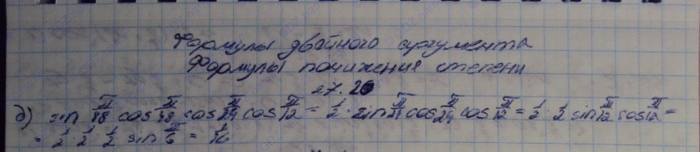 Формулы двойного аргумента
Формулы понижения степени
27.20
д) sin π/48 cos π/48 cos π/24 cos π/12 = 1/2 · sin π/24 cos π/24 cos π/12 = 1/2 · 1/2 sin π/12 cos π/12 =
= 1/2 · 1/2 · 1/2 sin π/6 = 1/16